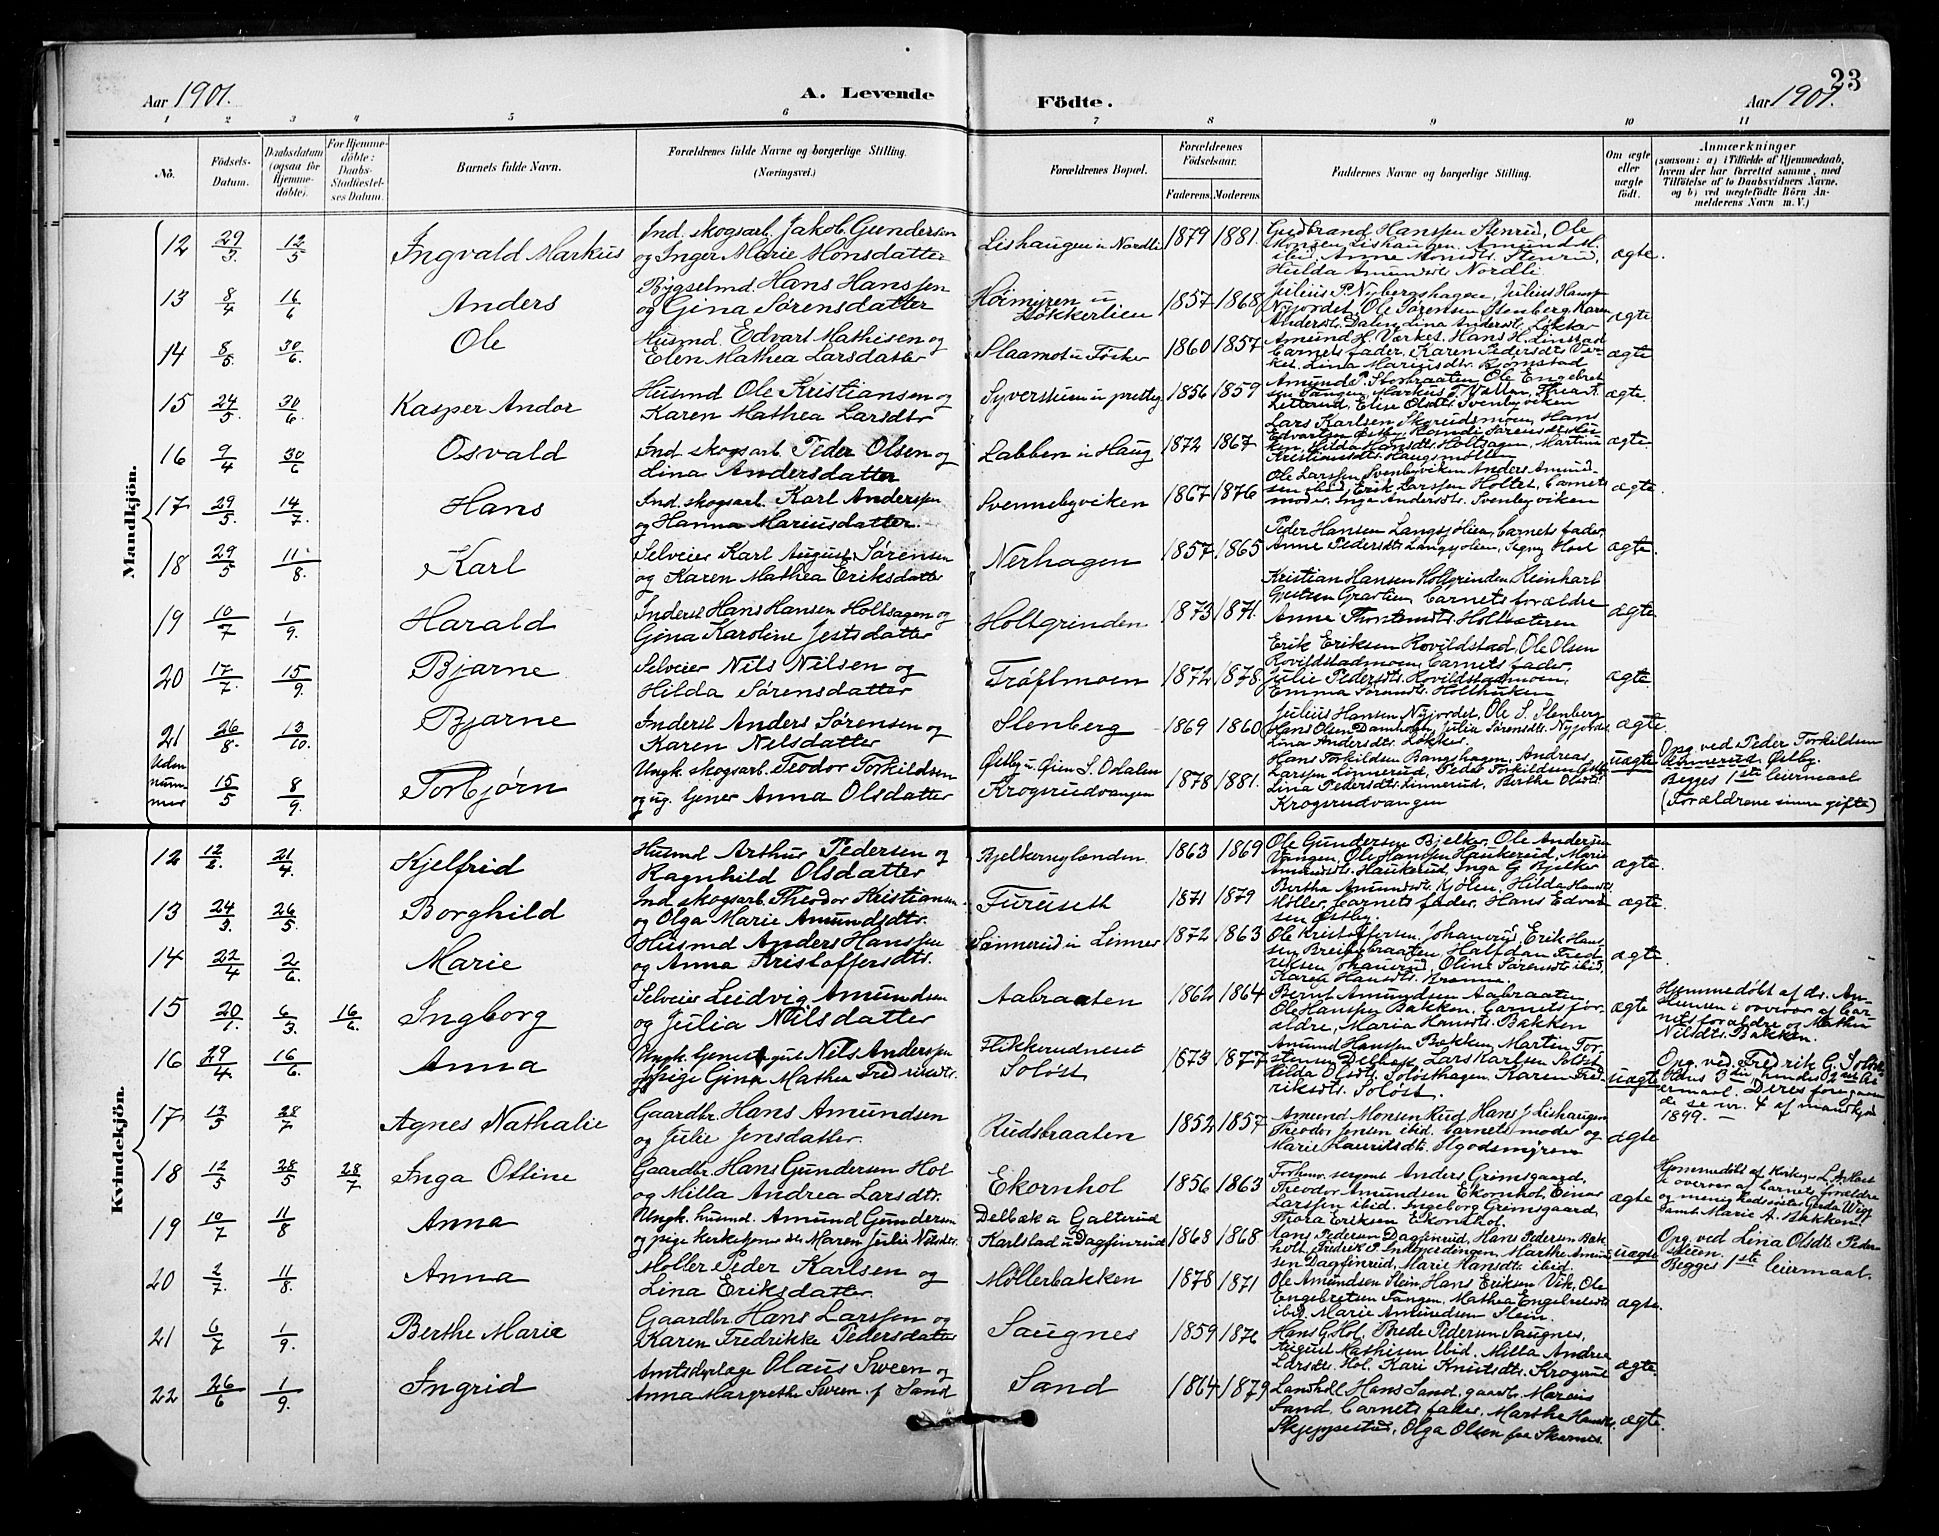 Aar 1901.
A. Levende
Födte.
Aar 1901.
23
1 2 3 4 5 6 7 8 9 10 11
No.
Födsels-Datum.
Daabsdatum (ogsaa for Hjemme-döbte).
For Hjemme-döbte: Daabs-Stadfæstel-ses Datum.
Barnets fulde Navn.
Forældrenes fulde Navne og borgerlige Stilling. (Næringsvei.)
Forældrenes Bopæl.
Forældrenes Födselsaar.
Faderens. Moderens.
Faddernes Navne og borgerlige Stilling.
Om ægte eller uægte födt.
Anmærkninger
(saasom: a) i Tilfælde af Hjemmedaab,
hvem der har forrettet samme, med
Tilföielse af to Daabsvidners Navne.
og b) ved uægtefödte Börn An-
melderens Navn m. V.)
Mandkjön.
12 29/3 12/5 Ingvald Markus
Ind. skogsarb. Jakob Gundersen
og Inger Marie Monsdatter
Lishaugen u Nordli 1879 1881.
Gudbrand Hanssen Stenrud, Ole
Monsen Lishaugen, Amund
ibid, Anne Monsdt. Stenrud,
Hulda Amundsdt. Nordli
ægte.
13 8/4 16/6 Anders
Bygselmd. Hans Hanssen
og Gina Sørensdatter
Høimyren u Løkkerlien 1857 1868
Nyjordet, Ole Sørensen Stenberg, Karen
Andersdt. Dalen, Lina Andersdt. Løkker
ægte
14 8/5 30/6 Ole
Husmd. Edvart Mathisen og
Elen Mathea Larsdatter
Slaamot u Fosker 1860 1857
Amund H. Værket, Hans H. Linstad
barnets fader, Karen Pedersdt. Vær-
ket, Lina Mariusdt.
ægte
15 24/5 30/6 Kasper Andor
Husmd Ole Kristiansen og
Karen Mathea Larsdtr
Syverstuen u prestlg 1856 1859
Amund P. Storbraaten, Ole Engebret-
sen Tangen, Markus
Elise Olsdt. Svenbyviken
ægte.
16 9/4 30/6 Osvald
Ind. skogsarb. Peder Olsen og
Lina Andersdatter
Labben u Haug 1872 1867
Lars Karlsen Skyrudsmoen, Hans
Edvartsen Østby,
Hilda Hansdt. Holtsagen, Martine
Kristiansdt. Haugsmøllen
ægte
17 29/5 14/7. Hans
Ind. skogsarb. Karl Anderssen
og Hanna Mariusdatter.
Svennebyviken 1867 1876
Ole Larssen Svenbyviken Anders Amund-
sen ibid, Erik Larssen Holtet, barnets
moder, Inge Andersdt. Svenbyviken
ægte.
18 29/5 11/8. Karl
Selveier Karl August Sørensen
og Karen Mathea Eriksdatter
Nerhagen 1857 1865
Peder Hansen Langsjølien, barnets fader,
Anne Pedersdt. Langsjølien, Signy Hoel
ægte.
19 10/7 1/9. Harald
Inderst Hans Hansen Holtsagen og
Gina Karoline Jestsdatter
Holtgrinden 1873 1871.
Kristian Hansen Holtgrinden Reinhart
barnets forældre
Anne Thorstensdt.
ægte.
20 17/7. 15/9. Bjarne
Selveier Nils Nilsen og
Hilda Sørensdatter
Trøftmoen 1872 1878.
Erik Eriksen Rovildstad, Ole Olsen
Rovildstadmoen, barnets fader,
Julie Pedersdt. Rovildstadmoen,
Emma Sørensdt. Holthuken
ægte.
21 26/8. 13/10. Bjarne
Inderst Anders Sørensen og
Karen Nilsdatter
Stenberg 1869 1860
Julius Hansen Nyjordet, Ole S. Stenberg
Hans Olsen Damholen, Julia Sørensdt. Nyjordet,
Lina Andersdt. Løkker.
ægte
Uden nummer 15/5 8/9. Torbjørn
Ungk. skogsarb. Teodor Torkildsen
og ug. tjener Anna Olsdatter
Østby u. Øien S. Odalen
Krogsrudvangen 1878 1881.
Hans Torkildsen Bangshagen, Andreas
Larssen Linnerud, Peder Torkildsen Østby
Lina Pedersdt. Linnerud, Berthe Olsdt.
Krogsrudvangen
uægte
Opg. ved Peder Torkildsen
Østby.
Begges 1ste leiermaal
(Forældrene sinne gifte)
Kvindekjön.
12 12/2. 21/4. Kjelfrid
Husmd Arthur Pedersen og
Ragnhild Olsdatter
Bjelkerneylenden. 1863 1869
Ole Gundersen Bjelker, Ole Andersen
Vangen, Ole Hanssen Haukerud, Marie
Amundsdt. Haukerud, Inga G. Bjelker
ægte.
13 24/3. 26/5. Borghild
Ind. skogsarb. Theodor Kristiansen
og Olga Marie Amundsdtr.
Furuseth 1871 1879
Bertha Amundsdt. Kjølen, Hilda Hansdt.
Møller, barnets fader, Hans Edvart-
sen Østby.
ægte.
14 22/4 2/6. Marie
Husmd Anders Hanssen
og Anna Kristoffersdt.
Linnerud u Linner 1872 1863
Ole Kristoffersen Johanrud, Erik Han-
sen Breidebraaten, Halfdan Fred-
riksen Johanrud, Oline Sørensdt. ibid,
Karen Hansdt.
ægte.
15 20/1. 6/3. 16/6. Ingborg
Selveier Ludvig Amundsen
og Julia Nilsdatter
Aabraaten 1862 1864
Bernt Amundsen Aabraaten,
Ole Hanssen Bakken, barnets for-
ældre, Maria Hansdt. Bakken
ægte
Hjemmedøbt af dr. An-
i overvær af bar-
nets forældre og Mathea
Nilsdt. Bakken.
16 29/4. 16/6. Anna
Ungk. Nils Anderssen
og pige Gina Mathea Fredriksdt.
Flikkerudneset
Soløst 1873 1877
Amund Hanssen Bakken, Martin Tor-
stensen Delbæk, Lars Karlsen Soløst
Hilda Olsdt. Soløsthagen, Karen Fred-
riksdt. Soløst.
uægte
Opg. ved Fredrik G. Soløst.
Hans 3die, hendes 2det lei-
ermaal. Deres foregaaen-
de se nr. 4 af mandkjøn
1899.
17 13/5 28/7 Agnes Nathalie
Gaardbr. Hans Amundsen
og Julie Jensdatter.
Rudsbraaten 1852 1857
Amund Monsen Rud, Hans J. Lishaugen
Theodor Jensen ibid. barnets moder og
Marie Lauritsdt.
ægte
18 12/5 28/5 28/7 Inga Ottine
Gaardbr. Hans Gundersen Hol
og Milla Andrea Larsdtr.
Ekornhol 1856 1863
Forhenv. sergent Anders Grimsgaard,
Theodor Amundsen Ekornhol, Einar
Larssen ibid. Ingeborg Grimsgaard,
Thora Eriksen Ekornhol.
ægte
Hjemmedøbt af
i overvær af barnets forældre
og menighedssøster Gerda Wig
samt Marie A. Bakken
19 10/7 11/8 Anna
Ungk. husmd. Amund Gundersen
og pige Maren Julie Nilsdt.
Delbæk a Galterud
Karlstad u Dagfinrud 1863 1868
Hans Pedersen Dagfinrud, Hans Pedersen Bek-
holt, Fredrik P. Marthe Amund-
sen Dagfinrud, Marie Hansdt. ibid.
uægte
Opg. ved Lina Olsdt. Peder-
stuen.
Begges 1ste leiermaal.
20 2/7. 11/8. Anna
Møller Peder Karlsen og
Lina Eriksdatter.
Møllerbakken 1878 1871
Ole Amundsen Stein, Hans Eriksen Vik, Ole
Engebretsen Tangen, Mathea Engebretsdt.
ibid, Marie Amundsen Stein.
ægte.
21 6/7 1/9. Berthe Marie
Gaardbr Hans Larssen og
Karen Fredrikke Pedersdatter
Saugnes 1859 1876
Hans G. Hol, Brede Pedersen Saugnes,
August Mathisen ibid, Milla Andrea
Larsdt. Hol, Kari Knutsdt. Krogsrud
ægte.
22 26/6 1/9. Ingrid
Amtsdyrlæge Olaus Sween og
Anna Margrethe Sween f. Sand
Sand 1864 1879
Landhdl Hans Sand, gaardbr. Marius
Sand, barnets fader, Marthe Hansdt.
Skjeppestad, Olga Olsen fra Skarnes.
ægte.